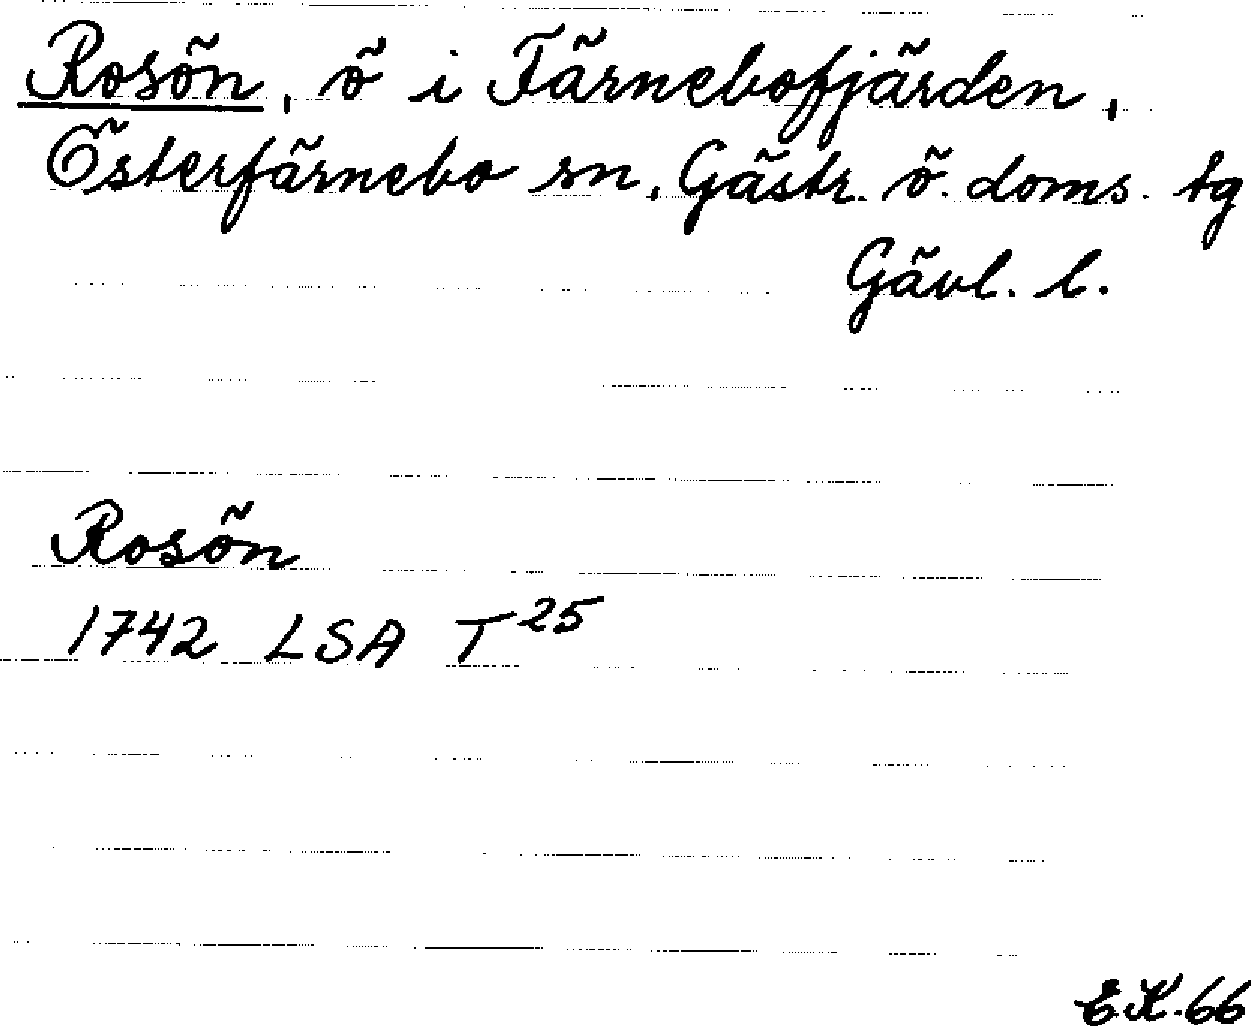 Rosön, ö i Färnebofjärden,
Österfärnebo sn, Gästr. ö. doms. tg
Gävl. l.
Rosön
1742 LSA T 25
E.K. 66